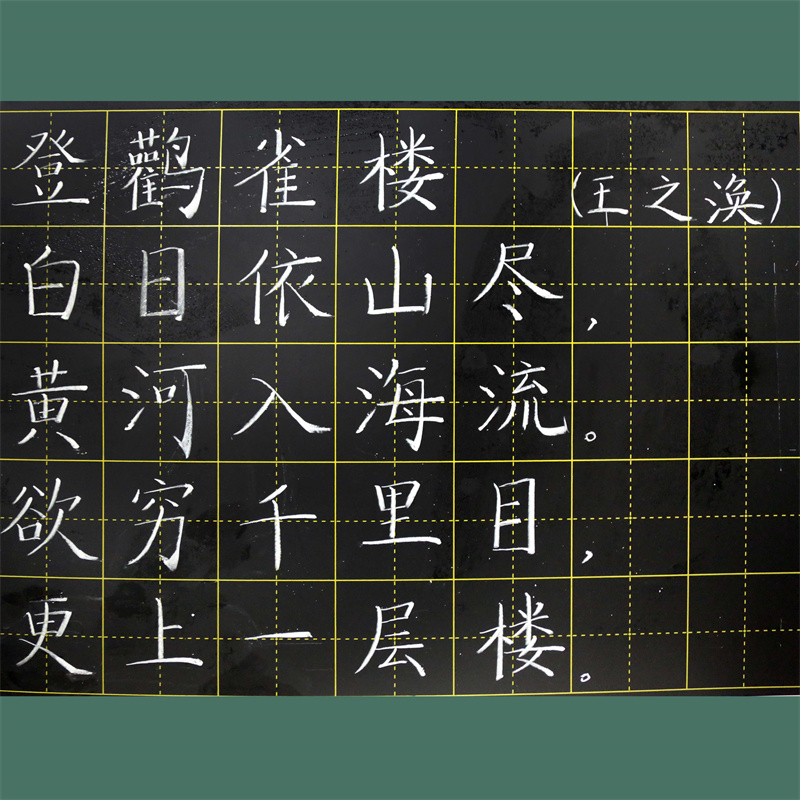 登鹳雀楼 (王之涣)
白日依山尽，
黄河入海流。
欲穷千里目，
更上一层楼。